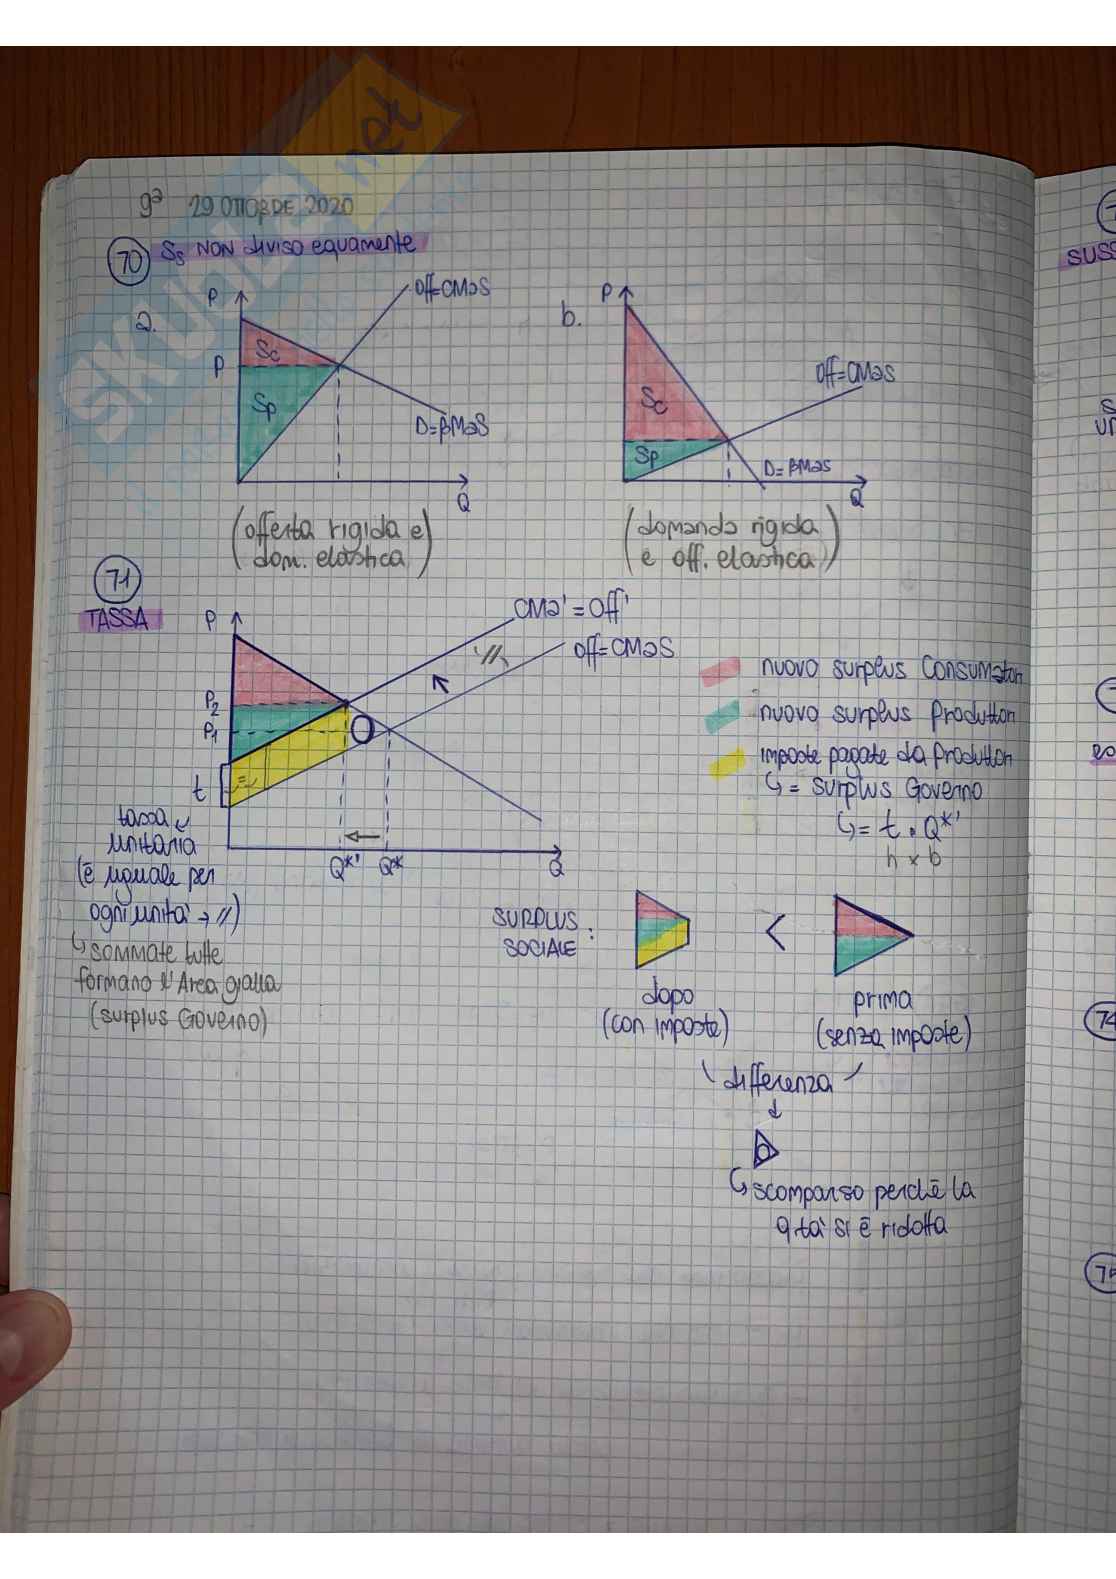 SKUOLA.net
9ª 29 OTTOBRE 2020
70 Ss NON diviso equamente
a.
P
Off=CMaS
Sc
P
Sp
D=βMaS
Q
(offerta rigida e
dom. elastica)
b.
P
Off=CMaS
Sc
Sp
D=βMaS
Q
(domanda rigida
e off. elastica)
71
TASSA
P
CMa' = Off'
//
Off=CMaS
P2
P1
t
Q*' Q* Q
tassa
unitaria
(è uguale per
ogni unità → //)
↳ sommate tutte
formano l'Area gialla
(surplus Governo)
nuovo surplus Consumatori
nuovo surplus Produttori
imposte pagate da Produttori
↳ = surplus Governo
↳ = t • Q*'
h x b
SURPLUS
SOCIALE :
<
dopo
(con imposte)
prima
(senza imposte)
differenza
↳ scomparso perchè la
q.tà si è ridotta
SUSS
74